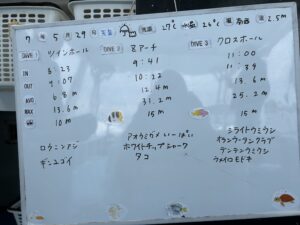 5月29日 天気 気温 27℃ 水温 26℃ 風 南西 波 2.5m
DIVE 1 ツインホール
IN
OUT
AVG
MAX 13.6m
10m
ロウニンアジ
ギンユゴイ
DIVE 2 8アーチ
9:41
10:22
12.4m
31.2m
15m
アオウミガメ いーぱい
ホワイトチップシャーク
タコ
DIVE 3 クロスホール
11:00
11:39
13.6m
25.2m
15m
ミライトウミウシ
オランウータンクラブ
デンデンウミウシ
ヌメイロモドキ